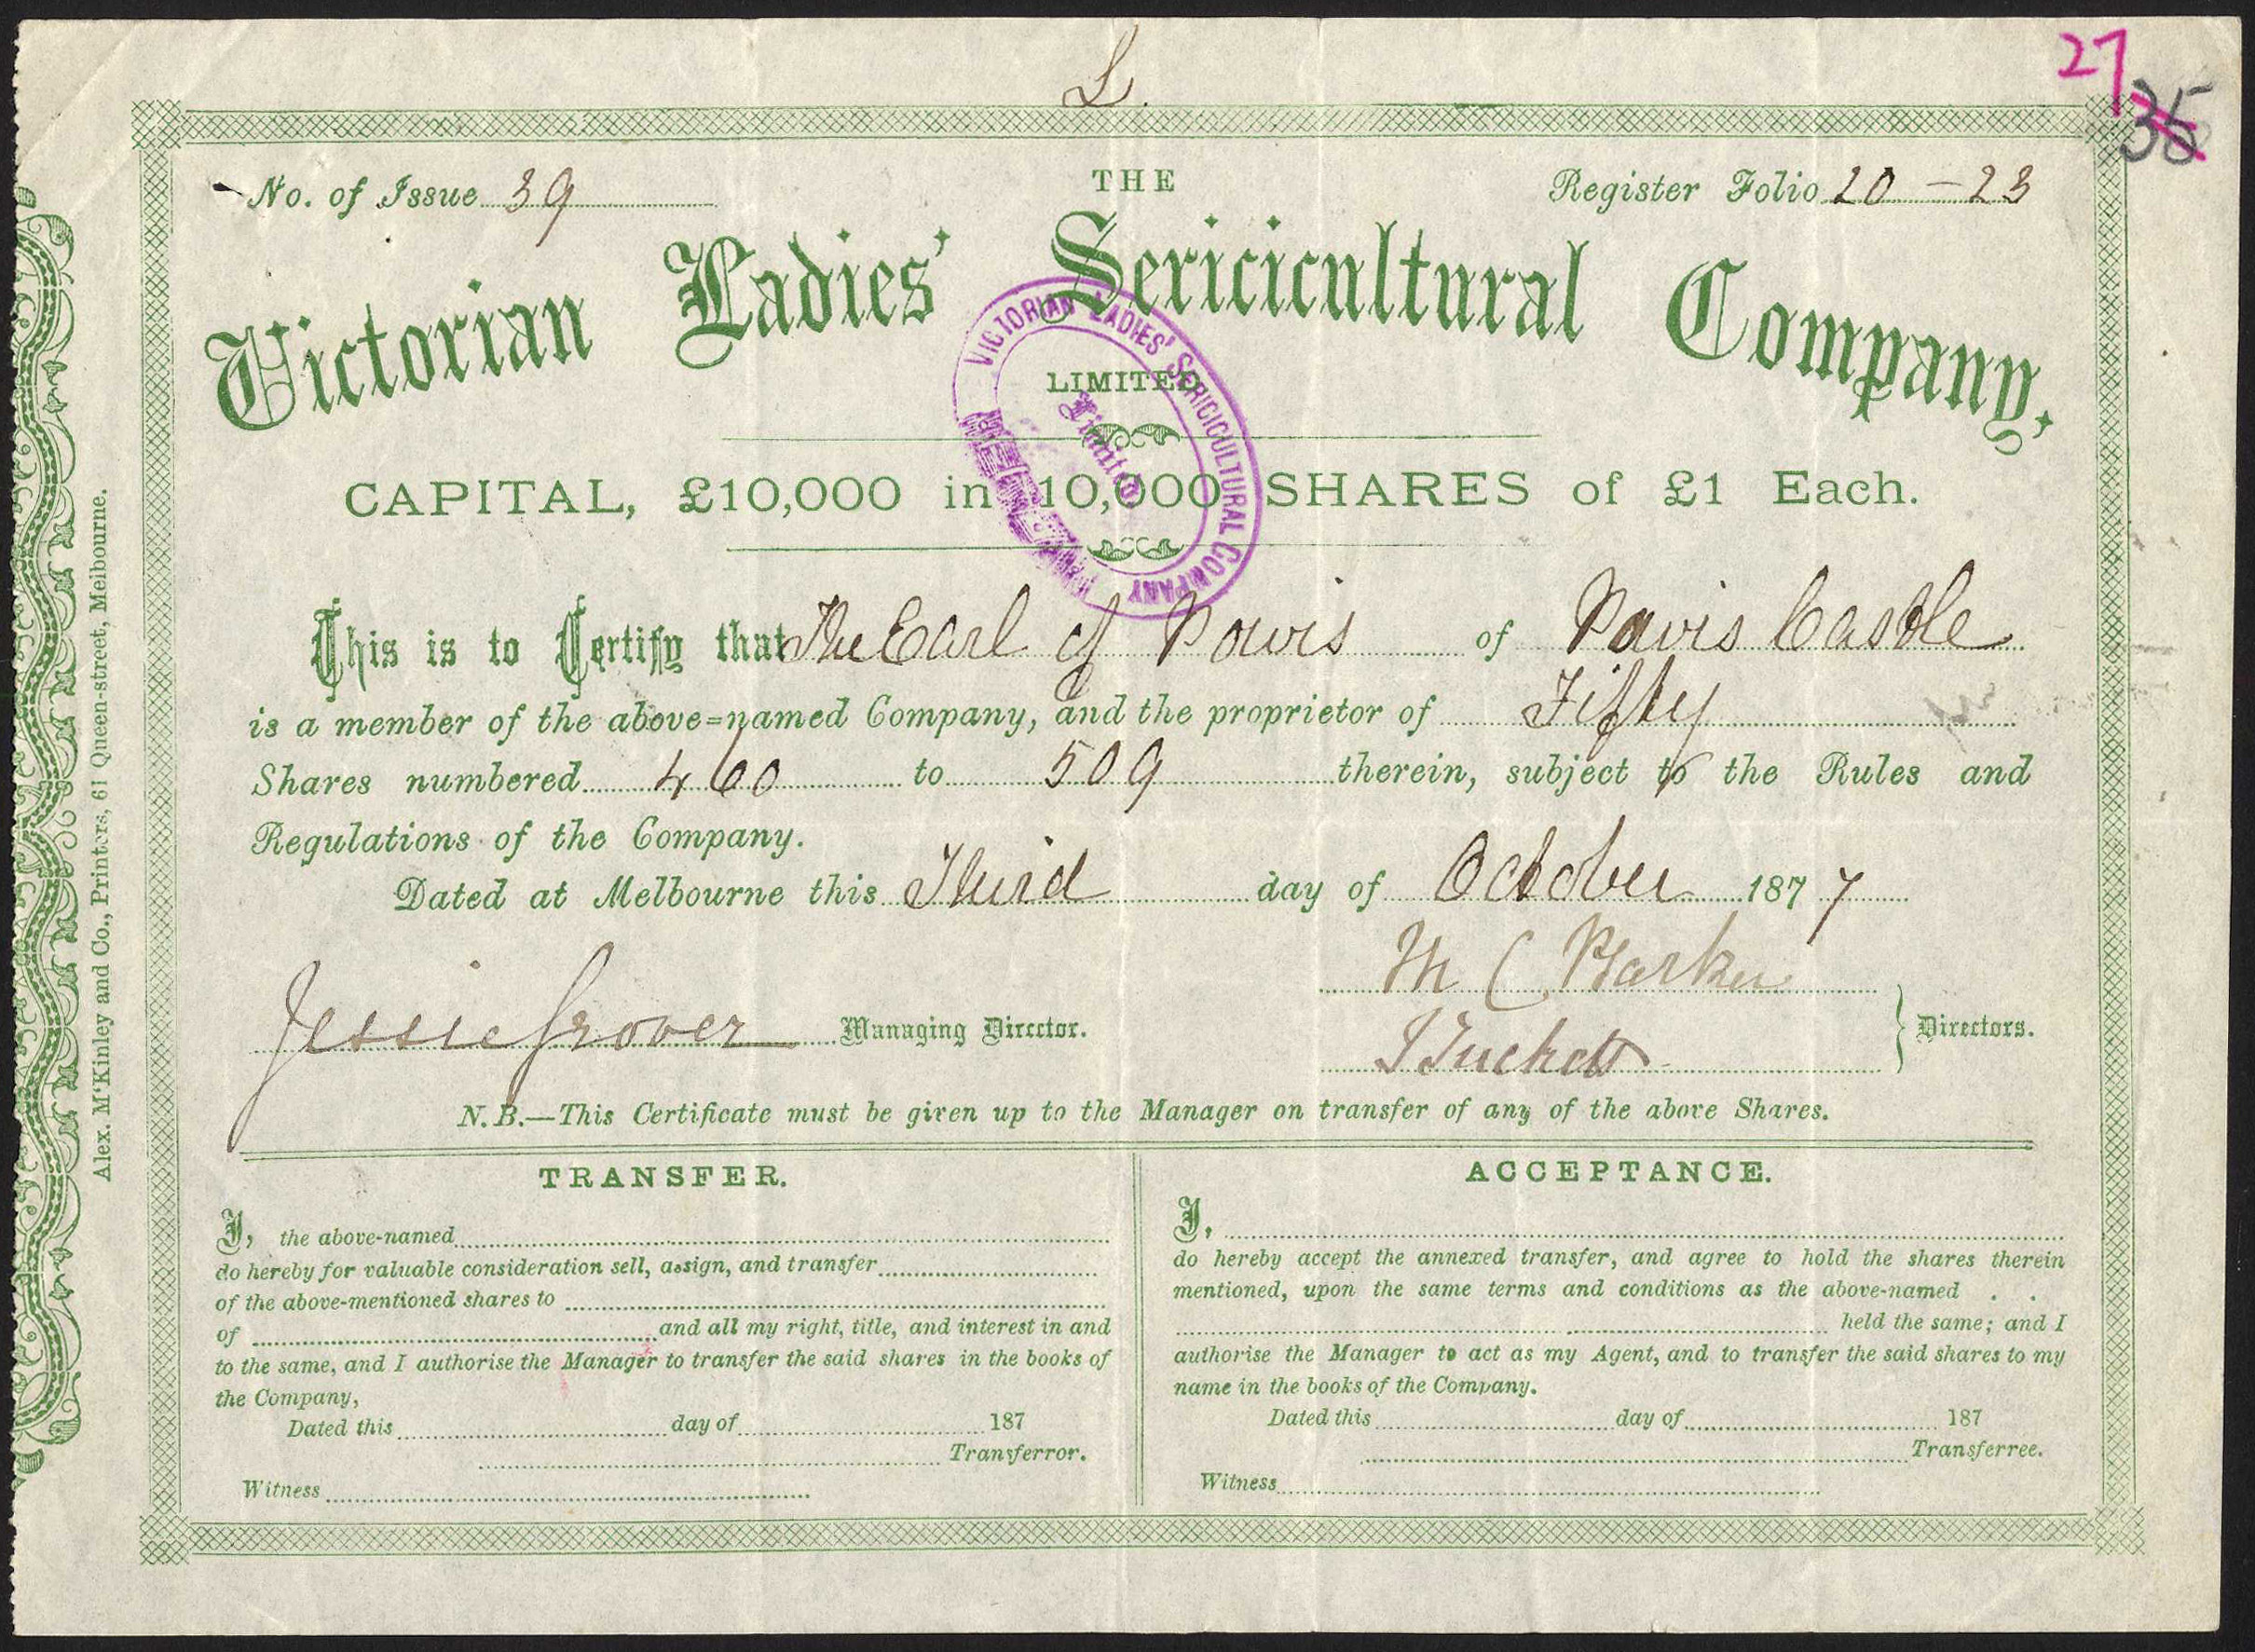 L.
27
35
No. of Issue 39
THE
Register Folio 20 - 23
Victorian Ladies' Sericicultural Company,
LIMITED
VICTORIAN LADIES' SERICICULTURAL COMPANY
Limited
CAPITAL, £10,000 in 10,000 SHARES of £1 Each.
This is to Certify that The Earl of Powis of Powis Castle
is a member of the above=named Company, and the proprietor of Fifty
Shares numbered 460 to 509 therein, subject to the Rules and
Regulations of the Company.
Dated at Melbourne this Third day of October 1877
M C Barker
Jessie Grover Managing Director.
Directors.
S Tuckett
N.B.—This Certificate must be given up to the Manager on transfer of any of the above Shares.
TRANSFER.
I, the above-named
do hereby for valuable consideration sell, assign, and transfer
of the above-mentioned shares to
of and all my right, title, and interest in and
to the same, and I authorise the Manager to transfer the said shares in the books of
the Company,
Dated this day of 187
Transferror.
Witness
ACCEPTANCE.
I,
do hereby accept the annexed transfer, and agree to hold the shares therein
mentioned, upon the same terms and conditions as the above-named . .
held the same; and I
authorise the Manager to act as my Agent, and to transfer the said shares to my
name in the books of the Company.
Dated this day of 187
Transferree.
Witness
Alex. M'Kinley and Co., Printers, 61 Queen-street, Melbourne.